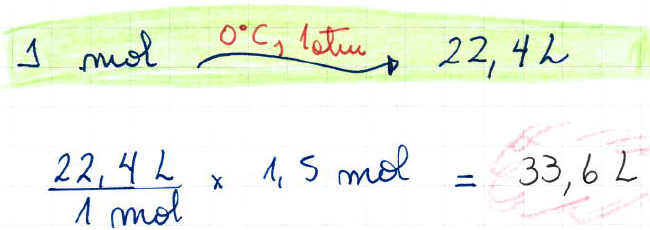 1 mol 0°C, 1atm 22,4 L
22,4 L / 1 mol × 1,5 mol = 33,6 L